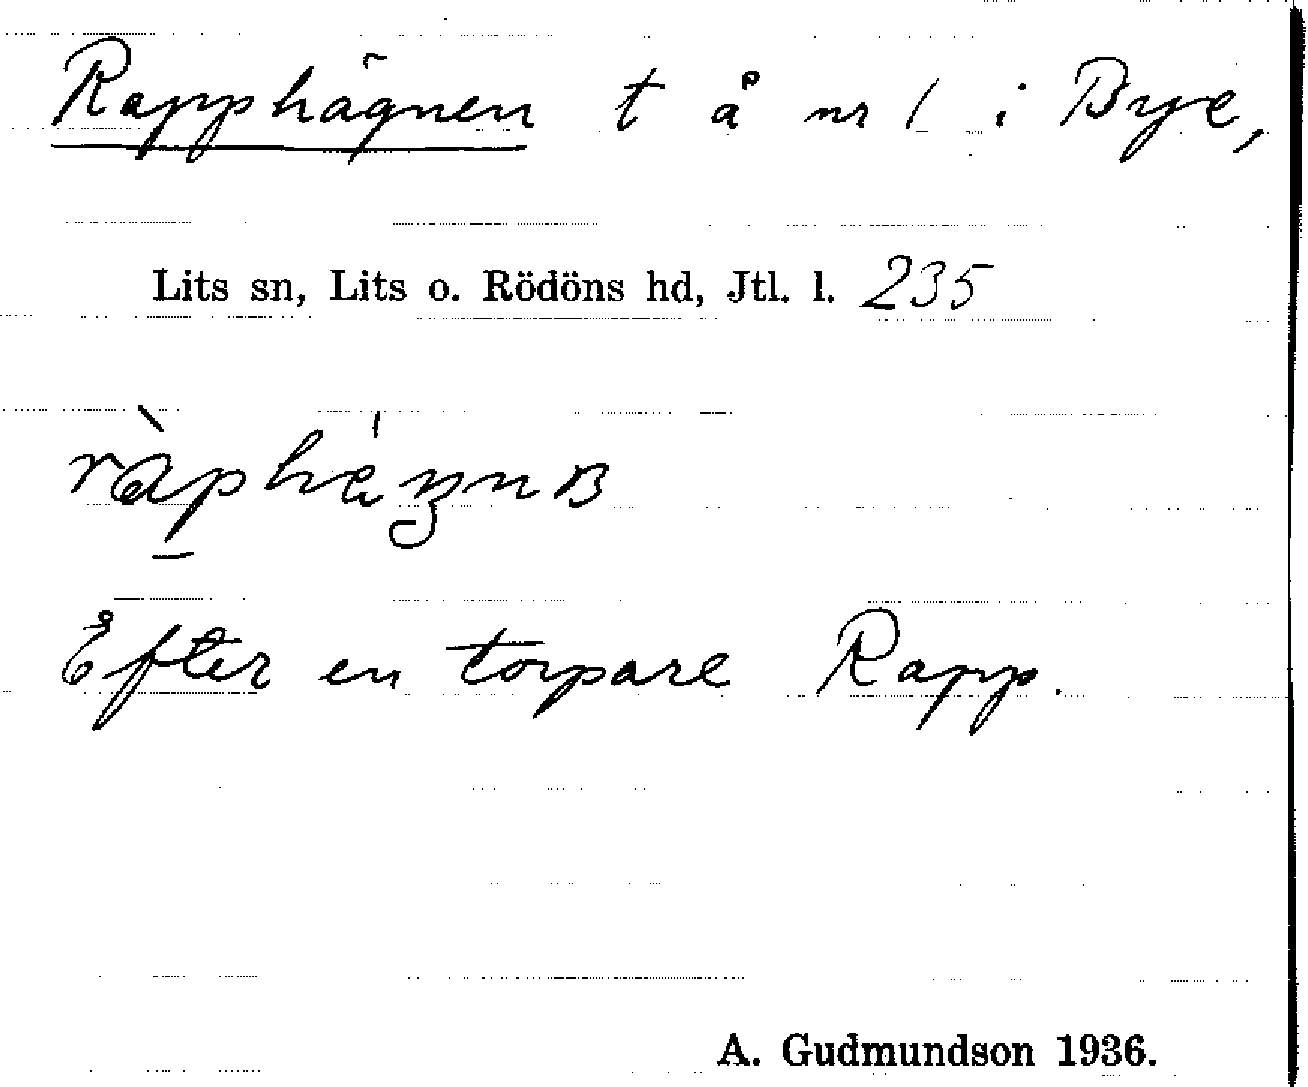 Rapphägnen t å nr 1 i Bye,
Lits sn, Lits o. Rödöns hd, Jtl. l. 235
Efter en torpare Rapp.
A. Gudmundson 1936.